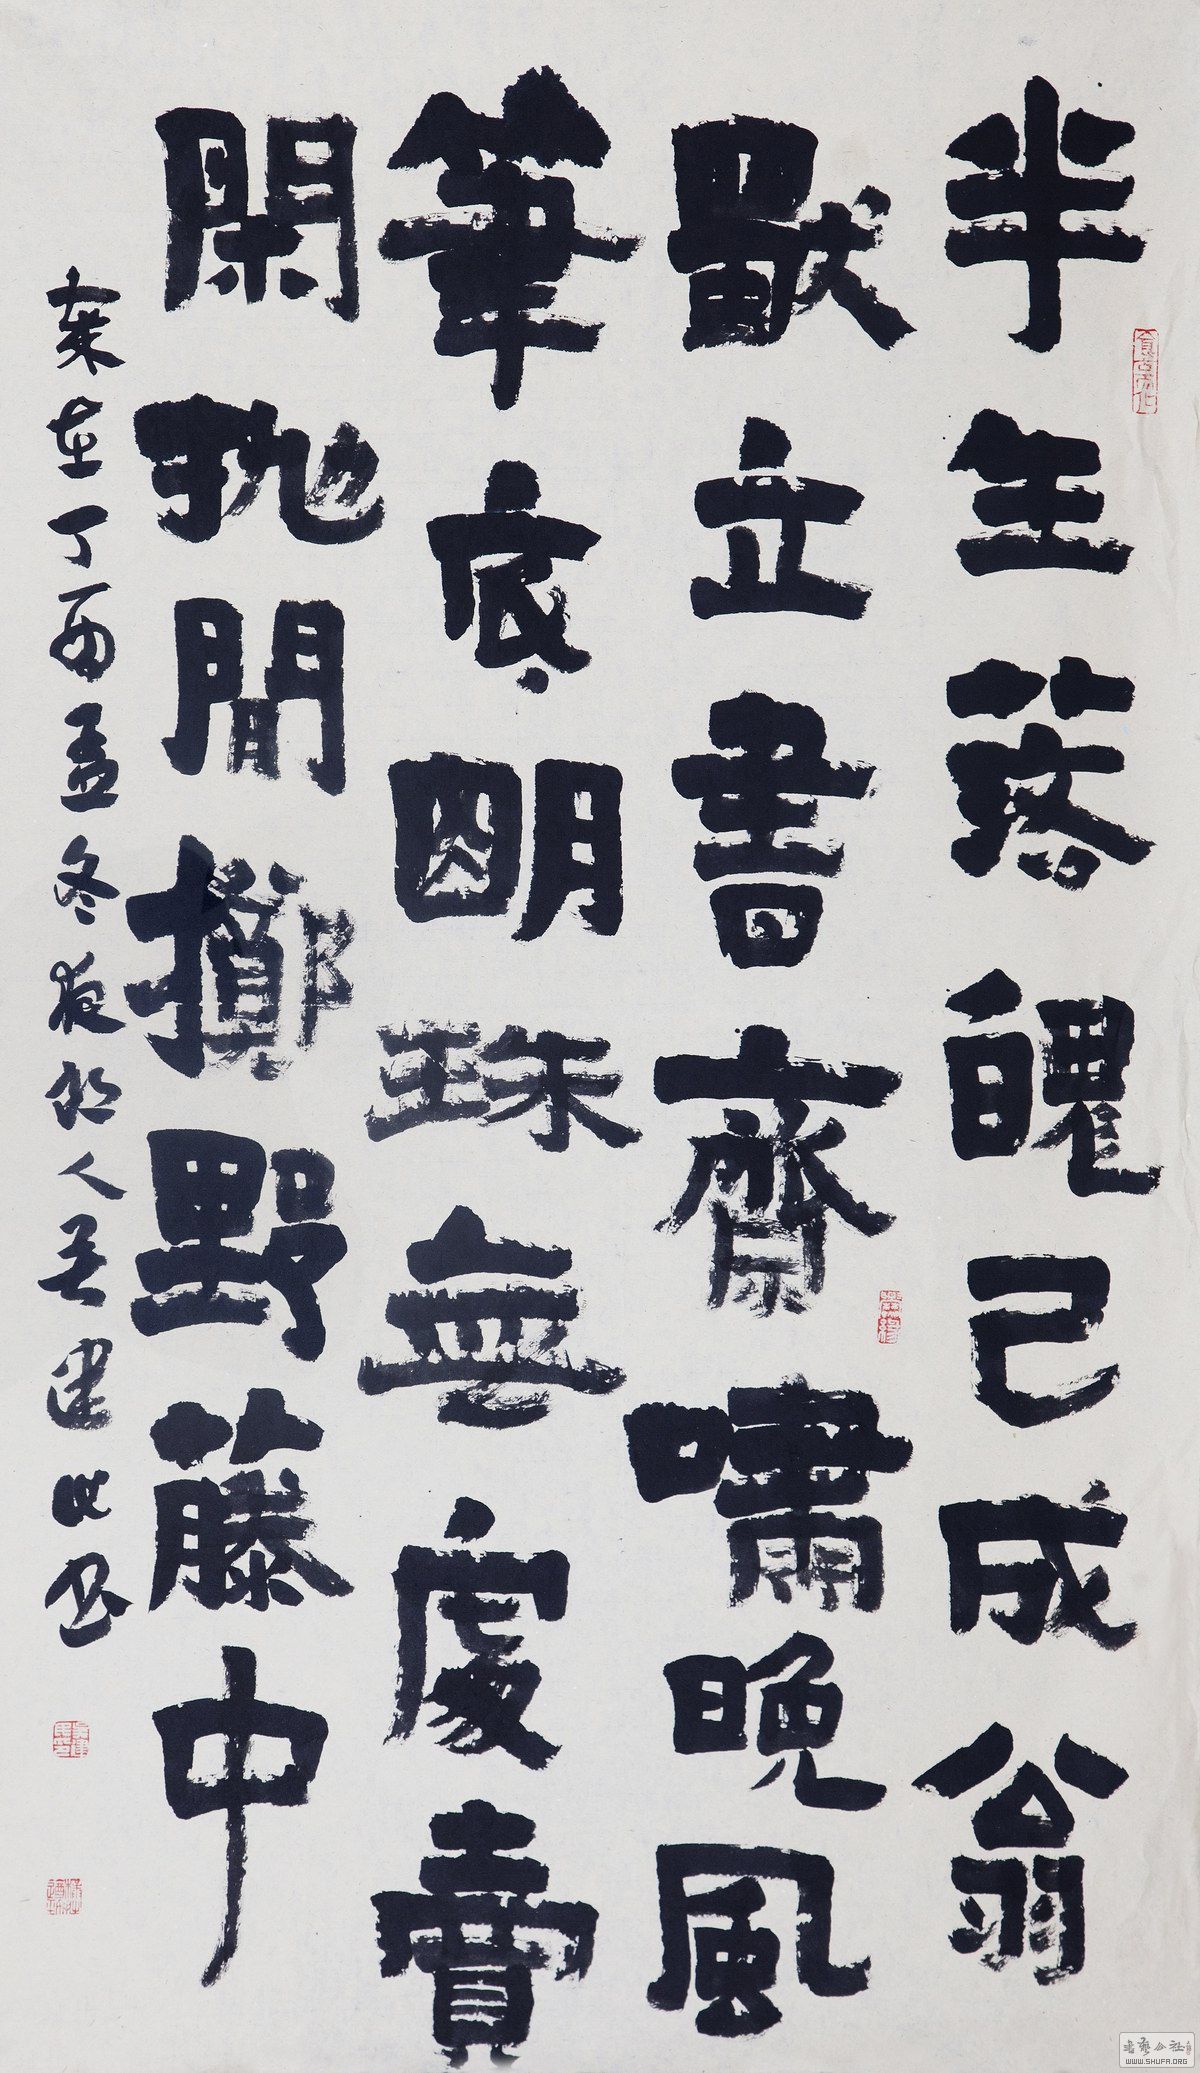 半生落魄已成翁
獨立書齋嘯晚風
筆底明珠無處賣
閑拋閒擲野藤中
在丁酉孟冬夜郎人吴建
書藝公社
WWW.SHUFA.ORG